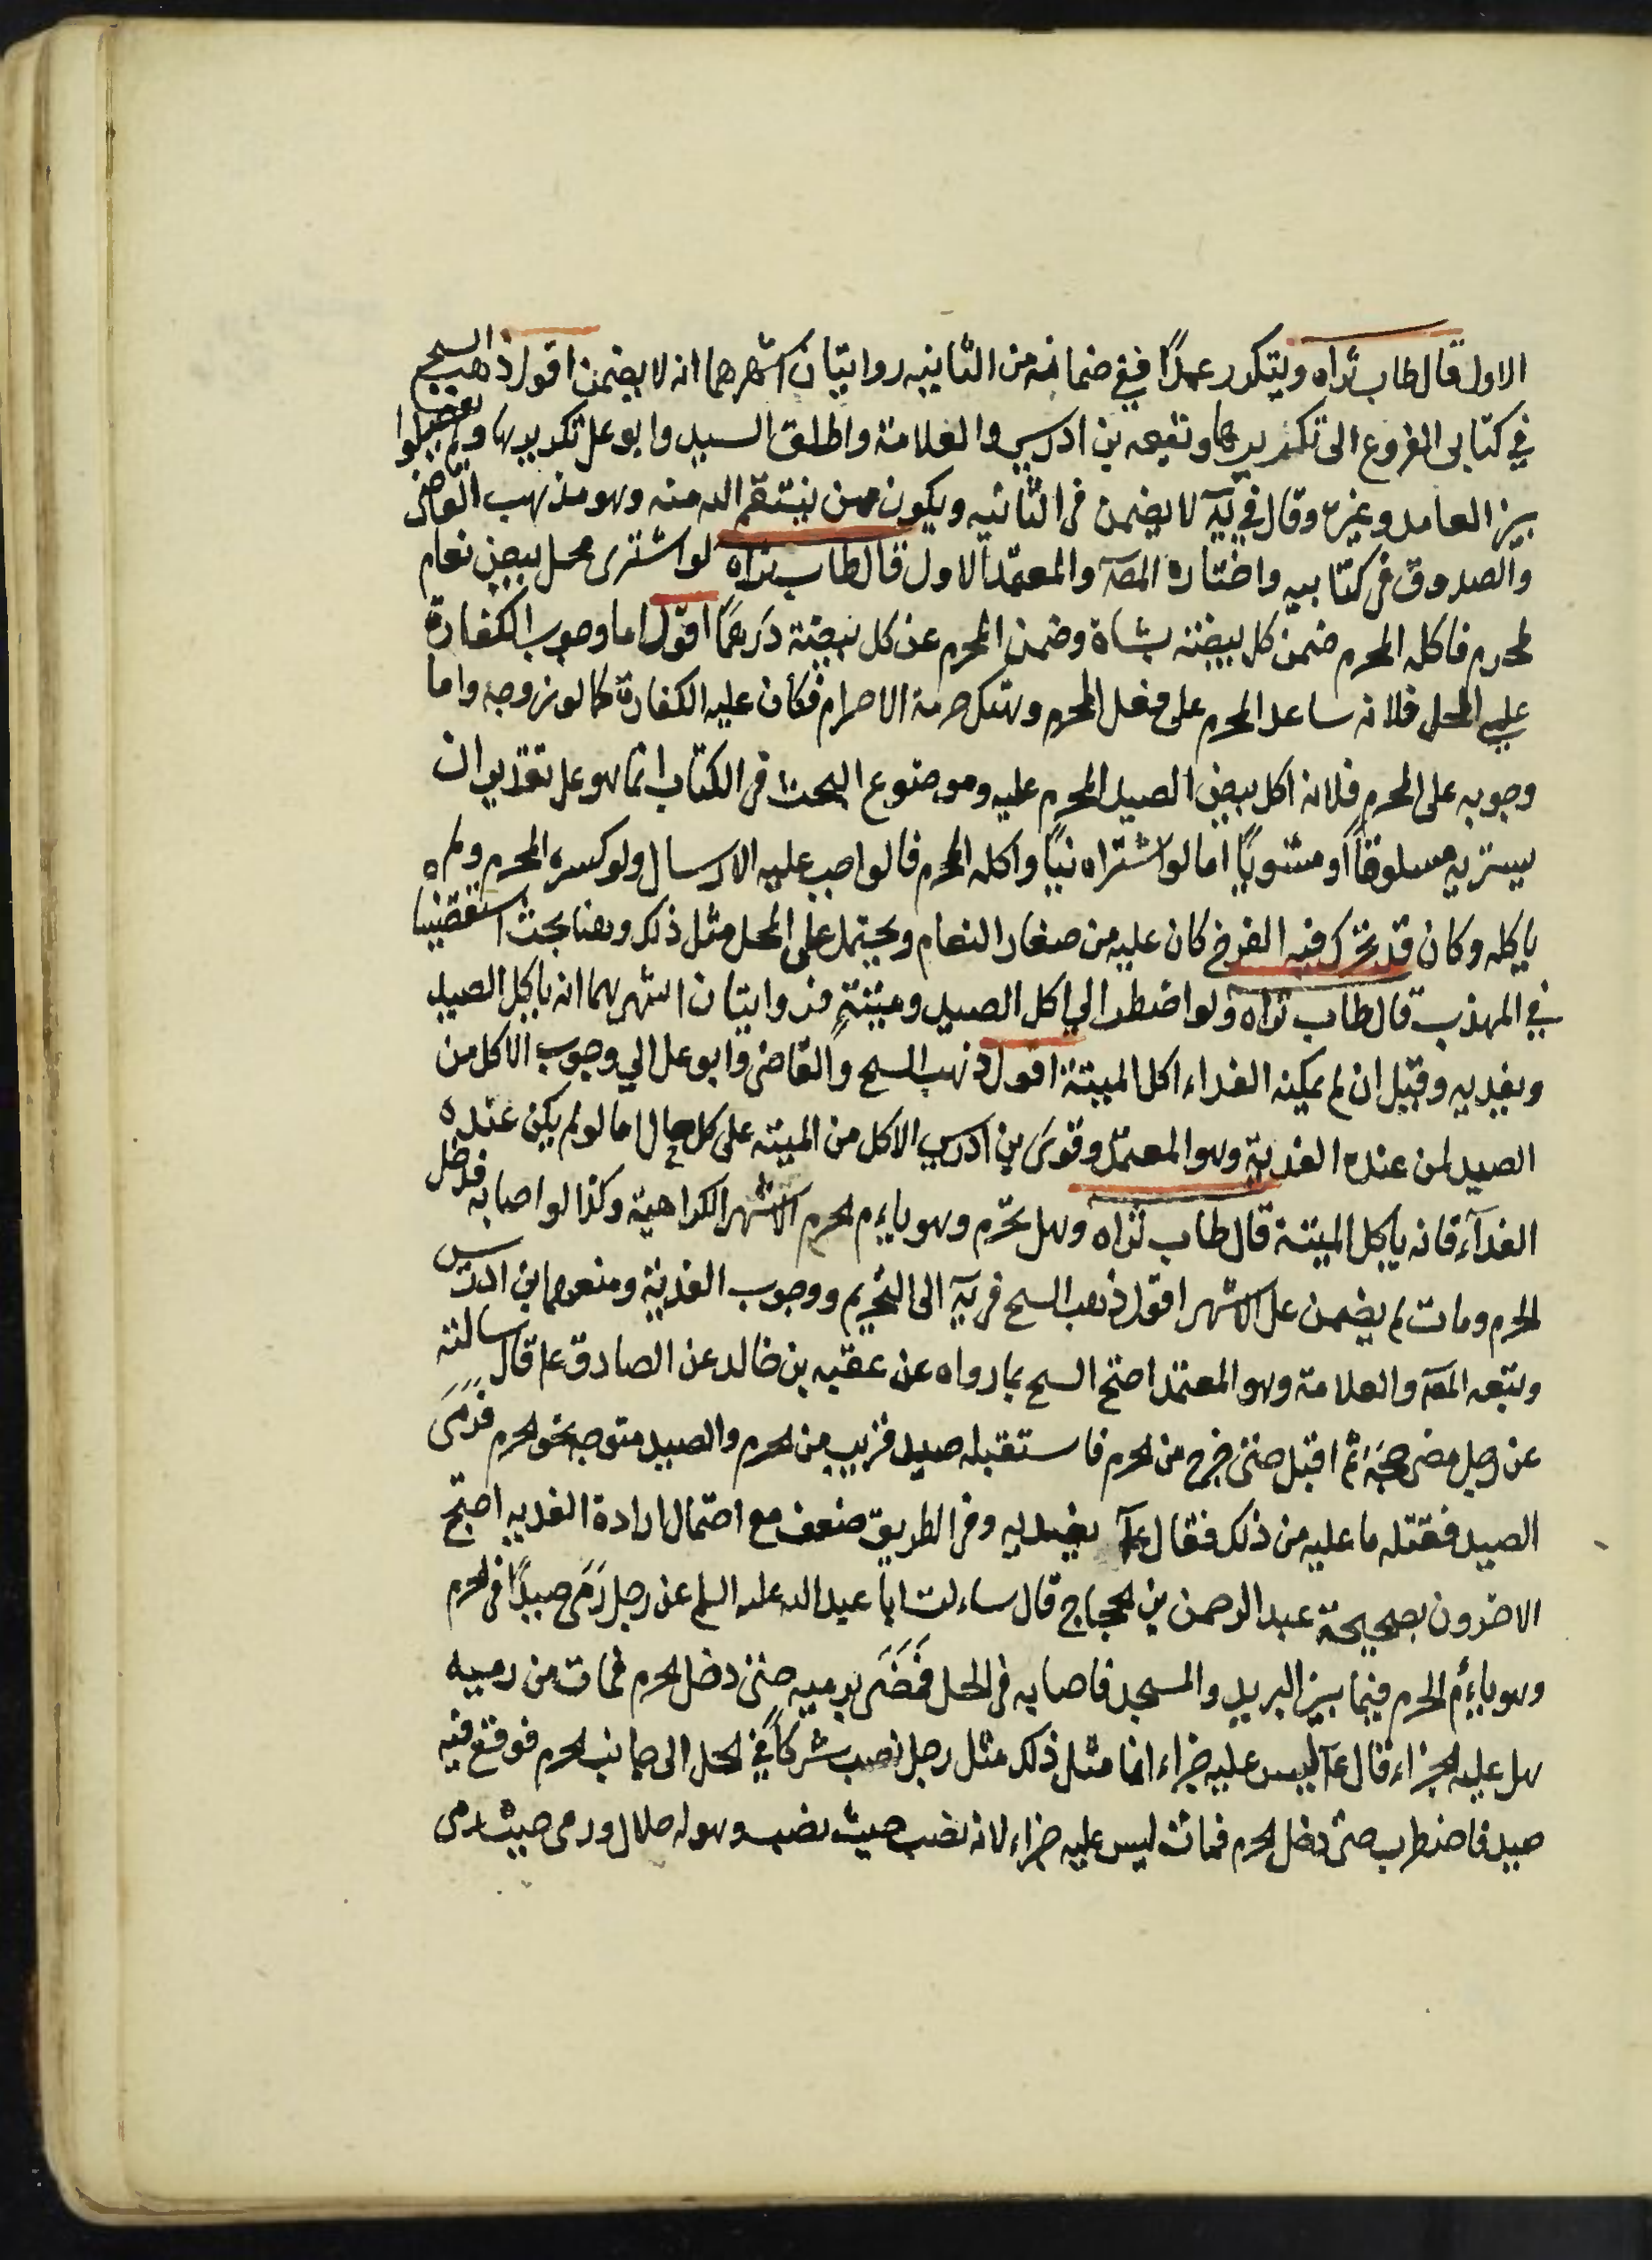 الاول قال طاب ثراه ويتكرر عمدًا ففي ضمانه من الثانيه روايتان اشهرهما انه لا يضمن اقول ذهب الشيخ
في كتابي الفروع الى تكريرها وتبعه بن ادريس والعلامة واطلق السيد وابو على تكريرها ولم يفصلوا
بين العامد وغيره وقال في يَه لا يضمن في الثانيه ويكون ممن ينتقم الله منه وهو مذهب القاضى
والصدوق فى كتابيه واختاره المصَه والمعتمد الاول قال طاب ثراه لو اشترى محل بيض نعام
لمحرم فاكله المحرم ضمن كل بيضه بشاة وضمن المحرم عن كل بيضة درهمًا اقول اما وجوب الكفارة
على المحل فلانه ساعد المحرم على فعل المحرم وهتك حرمة الاحرام فكان عليه الكفارة كما لو زوجه واما
وجوبه على المحرم فلانه اكل بيض الصيد المحرم عليه وموضوع البحث فى الكتاب انما هو على تقدير ان
يشتريه مسلوقًا او مشويًا اما لو اشتراه نيًا واكله المحرم فالواجب عليه الارسال ولو كسره المحرم ولم
ياكله وكان قد تحرك فيه الفرخ كان عليه من صغار النعام ويحتمل على المحل مثل ذلك وهنا بحث استقصيناه
في المهذب قال طاب ثراه ولو اضطر الى اكل الصيد وميتةٍ فروايتان اشهرهما انه ياكل الصيد
ويفديه وقيل ان لم يمكنه الفداء اكل الميتة اقول ذهب الشيخ والقاضى وابو على الى وجوب الاكل من
الصيد لمن عنده الفدية وهو المعتمد وقوّى بن ادريس الاكل من الميته على كل حال اما لو لم يكن عنده
الفدآء فانه ياكل الميتة قال طاب ثراه وهل يحرم وهو يايم الحرم الاشهر الكراهية وكذا لو اصابه فدخل
الحرم ومات لم يضمن على الاشهر اقول ذهب الشيخ فى يَه الى التحريم ووجوب الفدية ومنعهما ابن ادريس
وتبعه المصَه والعلامة وهو المعتمد احتج الشيخ بما رواه عن عقبه بن خالد عن الصادق ع قال سالته
عن رجل قضى حجه ثم اقبل حتى خرج من الحرم فاستقبله صيد قريب من الحرم والصيد متوجه نحو الحرم فرمَى
الصيد فقتله ما عليه من ذلك فقال ع يفديه وفى الطريق ضعف مع احتمال ارادة الفديه احتج
الاخرون بصحيحة عبد الرحمن بن الحجاج قال ساءلت ابا عبد الله عليه السلم عن رجل رَمَى صيدًا فى الحرم
وهو ياءُم الحرم فيما بين البريد والمسجد فاصابه فى الحل فمَضَى برميه حتى دخل الحرم فمات من رميه
هل عليه الجزاء قال ع ليس عليه جزاء انما مثل ذلك مثل رجل نصب شركًا في الحل الى جانب الحرم فوقع فيه
صيد فاضطرب حتى دخل الحرم فمات ليس عليه جزاء لانه نصب حيث نصب وهو له حلال ورمى حيث رمى